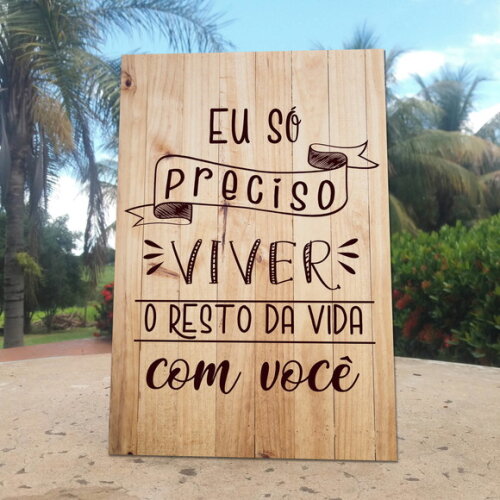 EU SÓ
PRECISO
VIVER
O RESTO DA VIDA
com você